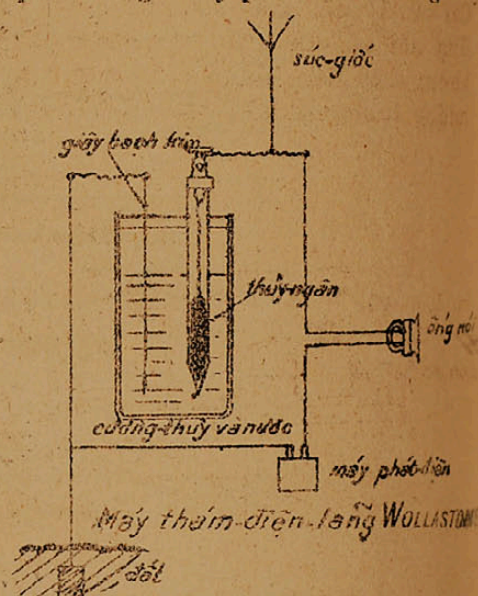 súc-giác
giây bạch kim
thủy-ngân
ống nói
cường-thủy và nước
máy phát-điện
Máy thám-điện-lang WOLLASTON
đất